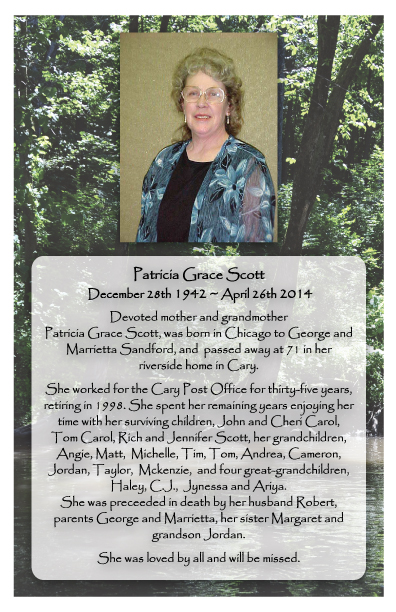 Patricia Grace Scott
December 28th 1942 ~ April 26th 2014
Devoted mother and grandmother
Patricia Grace Scott, was born in Chicago to George and
Marrietta Sandford, and passed away at 71 in her
riverside home in Cary.
She worked for the Cary Post Office for thirty-five years,
retiring in 1998. She spent her remaining years enjoying her
time with her surviving children, John and Cheri Carol,
Tom Carol, Rich and Jennifer Scott, her grandchildren,
Angie, Matt, Michelle, Tim, Tom, Andrea, Cameron,
Jordan, Taylor, Mckenzie, and four great-grandchildren,
Haley, C.J., Jynessa and Ariya.
She was preceeded in death by her husband Robert,
parents George and Marrietta, her sister Margaret and
grandson Jordan.
She was loved by all and will be missed.